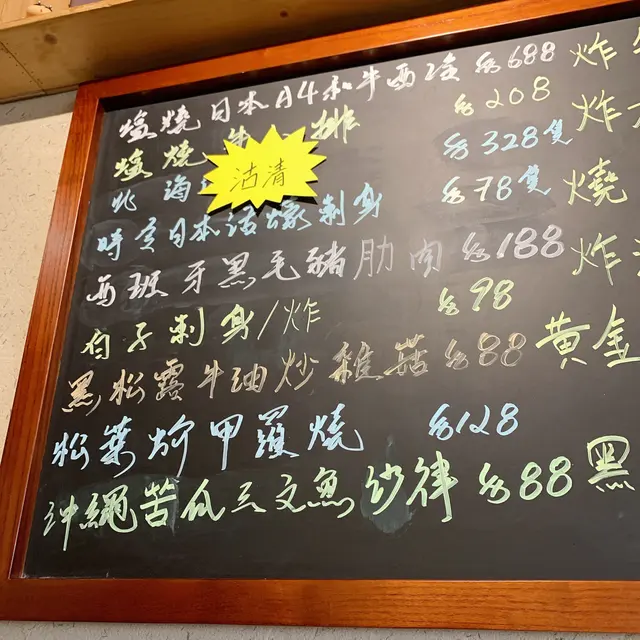 塩燒日本A4和牛西冷 $688 炸
塩燒牛 排 $208 炸
沽清
北海 $328隻
時令日本活蠔刺身 $78隻 燒
西班牙黑毛豬肋肉 $188 炸
白子刺身/炸 $98
黑松露牛油炒雜菇 $88 黃金
松葉蟹甲羅燒 $128
沖繩苦瓜三文魚沙律 $88 黑